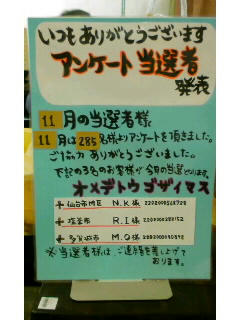 いつもありがとうございます
アンケート当選者
発表
11月の当選者様
11月は285名様よりアンケートを頂きました。
ご協力ありがとうございました。
下記の3名のお客様が今月の当選となります。
オメデトウゴザイマス
仙台市 N.K様
塩釜市 R.I様
多賀城市 M.O様
※当選者様は、ご連絡を差し上げて
おります。